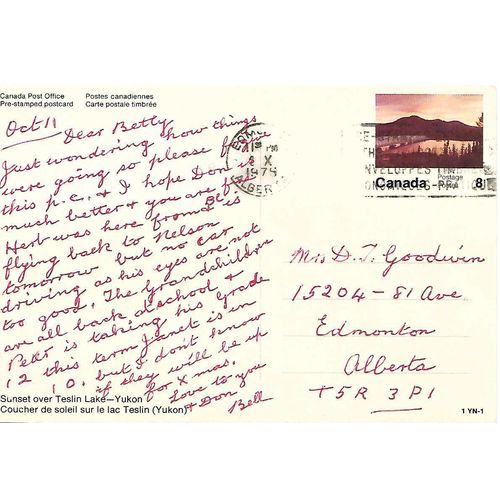 Canada Post Office
Pre-stamped postcard
Postes canadiennes
Carte postale timbrée
Oct 11
Dear Betty
Just wondering how things
were going so please forgive
this p.c. & I hope Don is
much better & you are fine
Herb was here from B.C.
flying back to Nelson
tomorrow but no car
driving as his eyes are not
too good. The Grandchildren
are all back at school &
Peter is taking his Grade
12 this term Janet is in
10. but I don't know
if they will be up
for Xmas.
Love to you
& Don
Bell
Sunset over Teslin Lake—Yukon
Coucher de soleil sur le lac Teslin (Yukon)
PM
X
1975
ALBER
Canada
Postage
8
Mrs D. T. Goodwin
15204-81 Ave
Edmonton
Alberta
T5R 3P1
1 YN-1